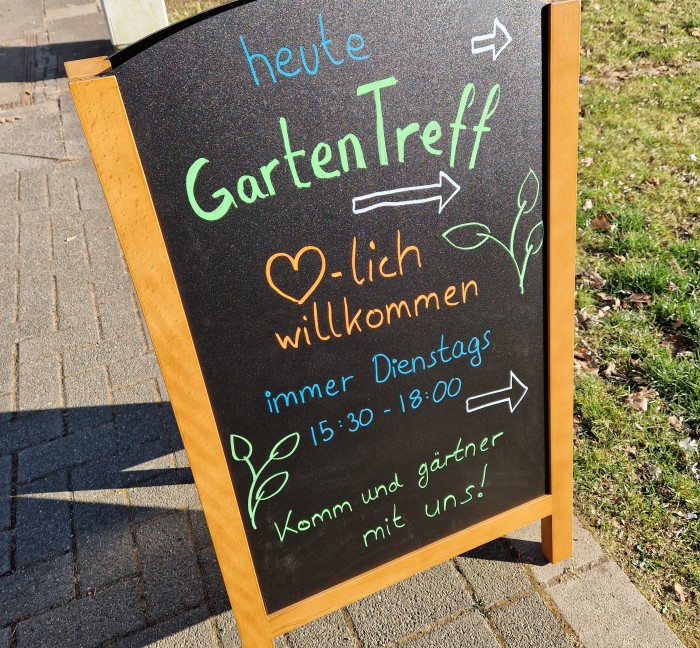 heute
GartenTreff
♡-lich
willkommen
immer Dienstags
15:30 - 18:00
Komm und gärtner
mit uns!